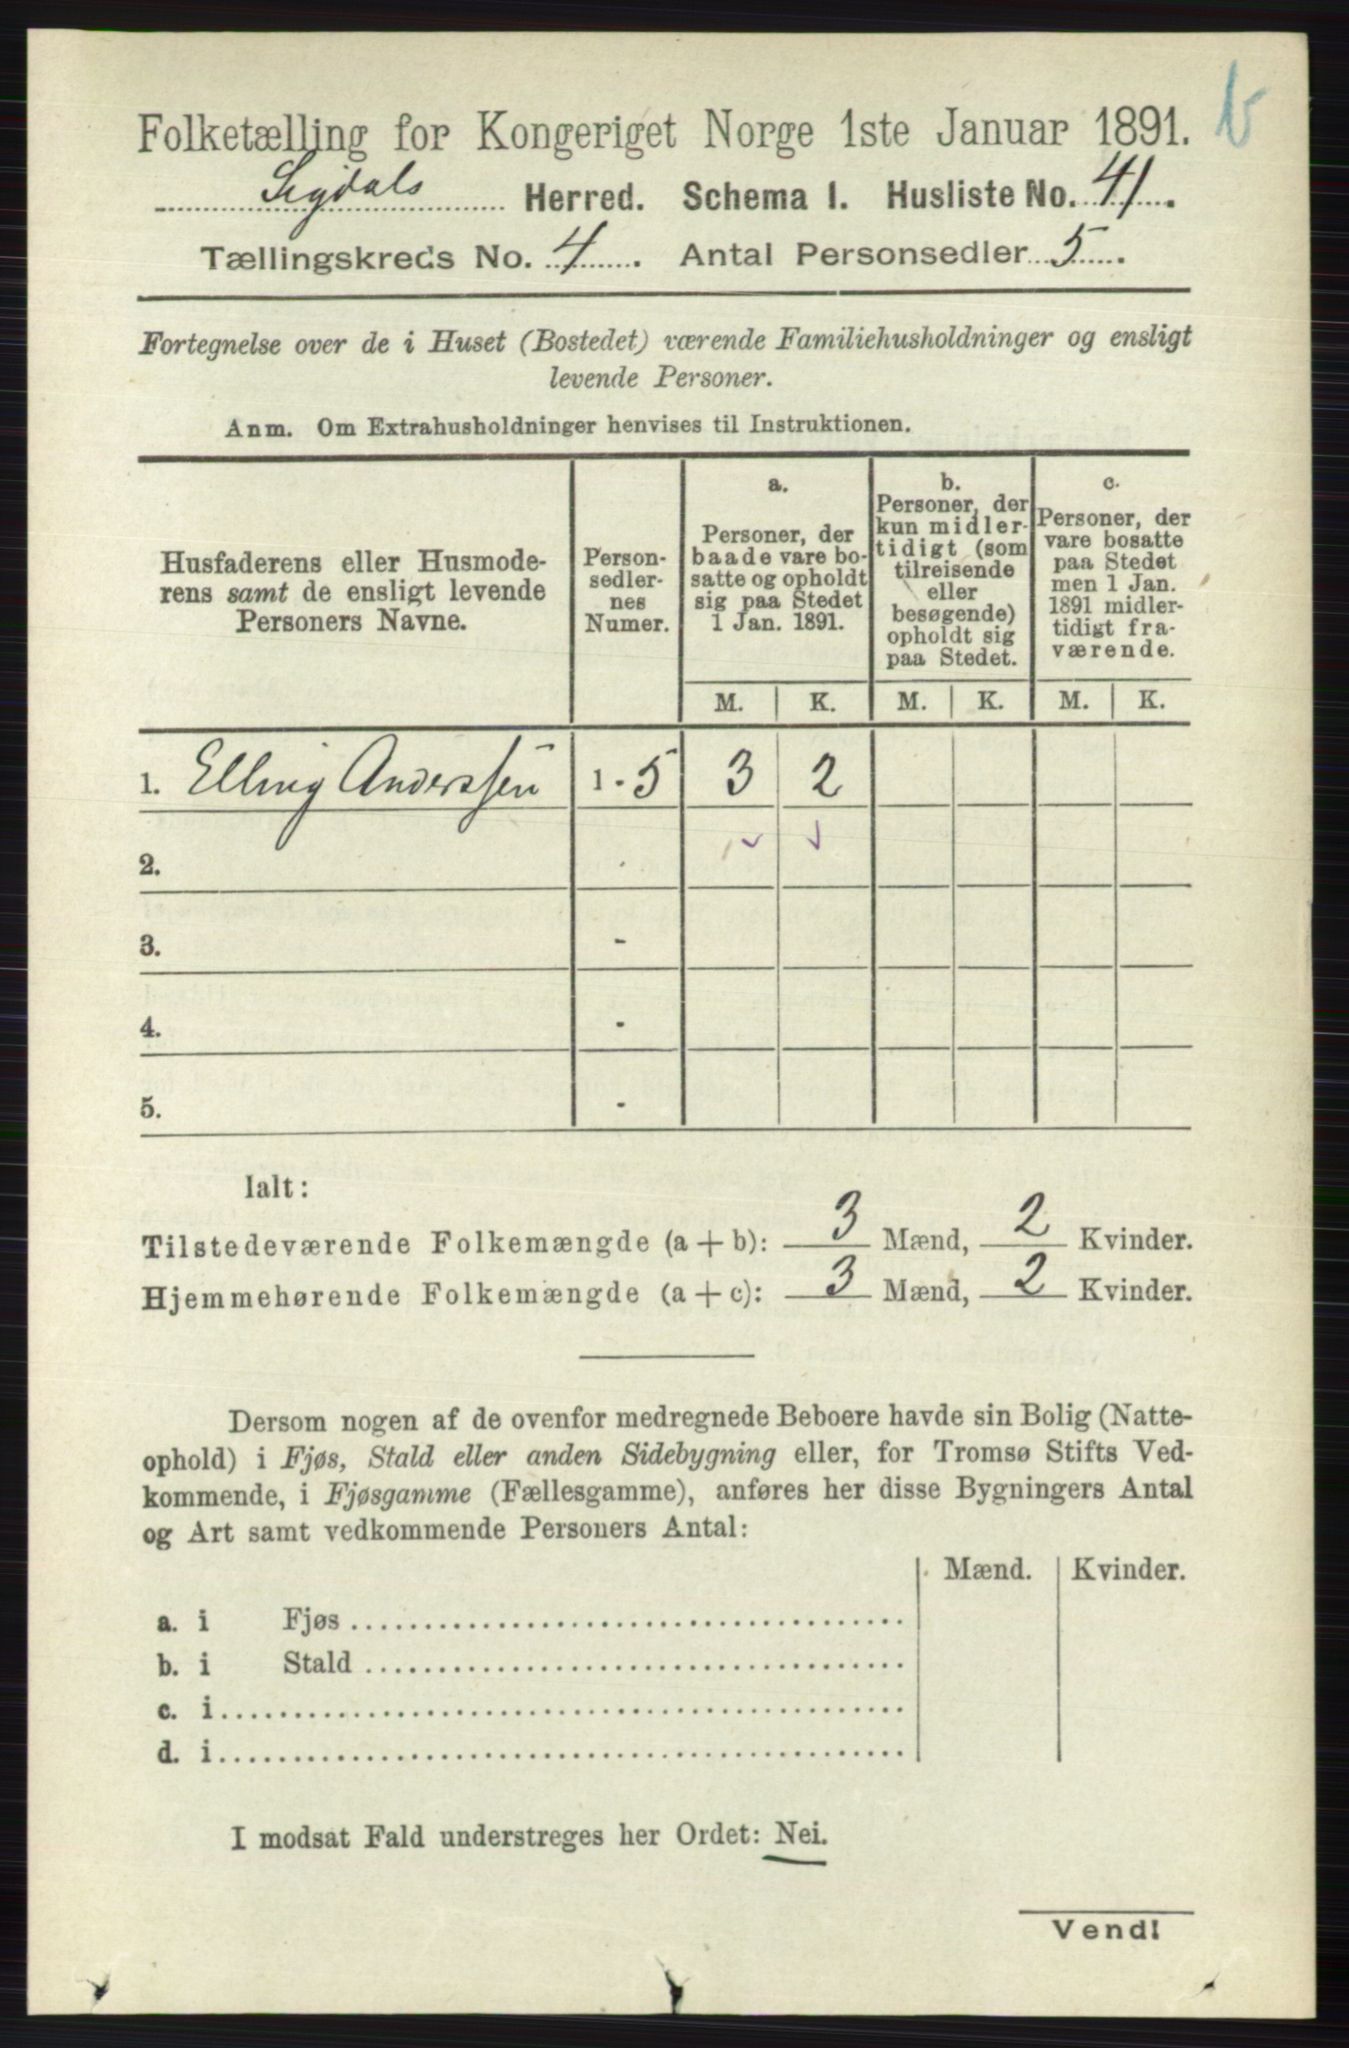 Folketælling for Kongeriget Norge 1ste Januar 1891.
Sigdals Herred. Schema 1. Husliste No. 41.
Tællingskreds No. 4. Antal Personsedler 5.
Fortegnelse over de i Huset (Bostedet) værende Familiehusholdninger og ensligt
levende Personer.
Anm. Om Extrahusholdninger henvises til Instruktionen.
Husfaderens eller Husmode-
rens samt de ensligt levende
Personers Navne.
Person-
sedler-
nes
Numer.
a.
Personer, der
baade vare bo-
satte og opholdt
sig paa Stedet
1 Jan. 1891.
b.
Personer, der
kun midler-
tidigt (som
tilreisende
eller
besøgende)
opholdt sig
paa Stedet.
c.
Personer, der
vare bosatte
paa Stedet
men 1 Jan.
1891 midler-
tidigt fra-
værende.
M. K. M. K. M. K.
1. Elling Anderssen 1 - 5 3 2
2.
3. -
4. -
5. -
Ialt:
Tilstedeværende Folkemængde (a + b): 3 Mænd, 2 Kvinder.
Hjemmehørende Folkemængde (a + c): 3 Mænd, 2 Kvinder.
Dersom nogen af de ovenfor medregnede Beboere havde sin Bolig (Natte-
ophold) i Fjøs, Stald eller anden Sidebygning eller, for Tromsø Stifts Ved-
kommende, i Fjøsgamme (Fællesgamme), anføres her disse Bygningers Antal
og Art samt vedkommende Personers Antal:
Mænd. Kvinder.
a. i Fjøs
b. i Stald
c. i
d. i
I modsat Fald understreges her Ordet: Nei.
Vend!